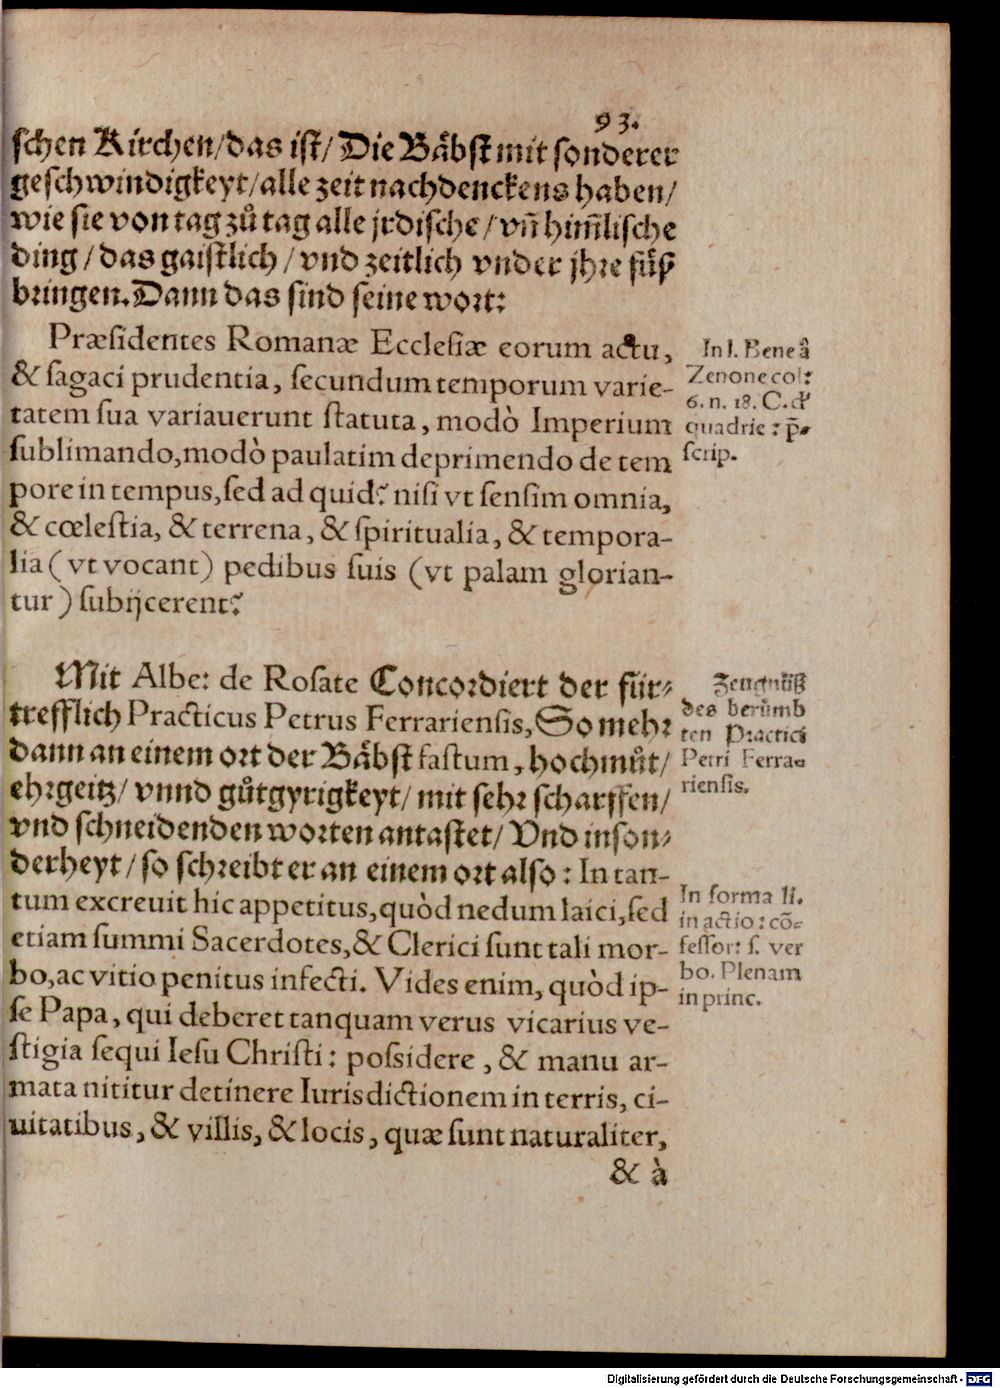 93.
schen Kirchen/das ist/ Die Bäbst mit sonderer
geschwindigkeyt/alle zeit nachdenckens haben/
wie sie von tag zů tag alle jrdische/ vn̄ him̄lische
ding/ das gaistlich/ vnd zeitlich vnder jhre füß
bringen. Dann das sind seine wort:
Præsidentes Romanæ Ecclesiæ eorum actu,
& sagaci prudentia, secundum temporum varie-
tatem sua variauerunt statuta, modò Imperium
sublimando, modò paulatim deprimendo de tem
pore in tempus, sed ad quid? nisi vt sensim omnia,
& cœlestia, & terrena, & spiritualia, & tempora-
lia (vt vocant) pedibus suis (vt palam glorian-
tur) subijcerent?
In l. Bene â
Zenone col:
6. n. 18. C. d'
quadrie: p̄-
scrip.
Mit Albe: de Rosate Concordiert der für-
trefflich Practicus Petrus Ferrariensis, So mehr
dann an einem ort der Bäbst fastum, hochmůt/
ehrgeitz/ vnnd gůtgyrigkeyt/ mit sehr scharffen/
vnd schneidenden worten antastet/ Vnd inson-
derheyt/ so schreibt er an einem ort also: In tan-
tum excreuit hic appetitus, quòd nedum laici, sed
etiam summi Sacerdotes, & Clerici sunt tali mor-
bo, ac vitio penitus infecti. Vides enim, quòd ip-
se Papa, qui deberet tanquam verus vicarius ve-
stigia sequi Iesu Christi: possidere, & manu ar-
mata nititur detinere Iurisdictionem in terris, ci-
uitatibus, & villis, & locis, quæ sunt naturaliter,
Zeugnüß
des berümb
ten Practici
Petri Ferra-
riensis.
In forma li.
in actio: cō-
fessor: s. ver
bo. Plenam
in princ.
& à
Digitalisierung gefördert durch die Deutsche Forschungsgemeinschaft - DFG